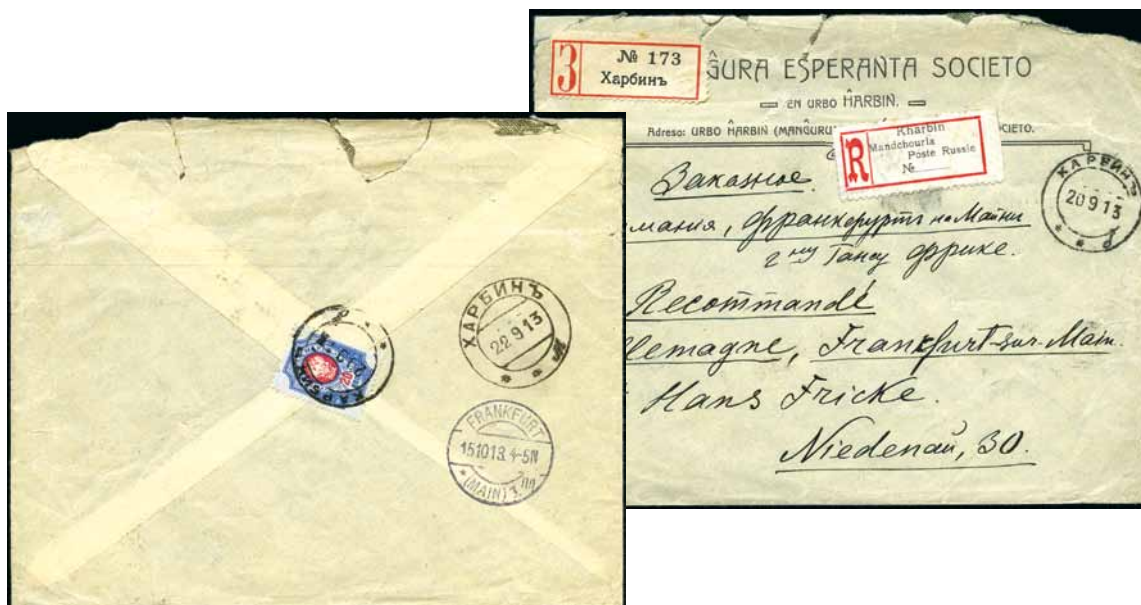 З № 173
Харбинъ
ĜURA ESPERANTA SOCIETO
EN URBO ĤARBIN.
Adreso: URBO ĤARBIN (MANĜURU CIETO.
R Kharbin
Mandchouria
Poste Russie
№
ХАРБИНЪ
20 9 13
Заказное.
мания, Франкфуртъ на Майни
г ну Гансу Фрике.
Recommandé
llemagne, Frankfurt-sur-Main.
Hans Fricke.
Niedenau, 30.
ХАРБИНЪ
ХАРБИНЪ
22 9 13
FRANKFURT
15 10 13. 4-5N
(MAIN) 1.